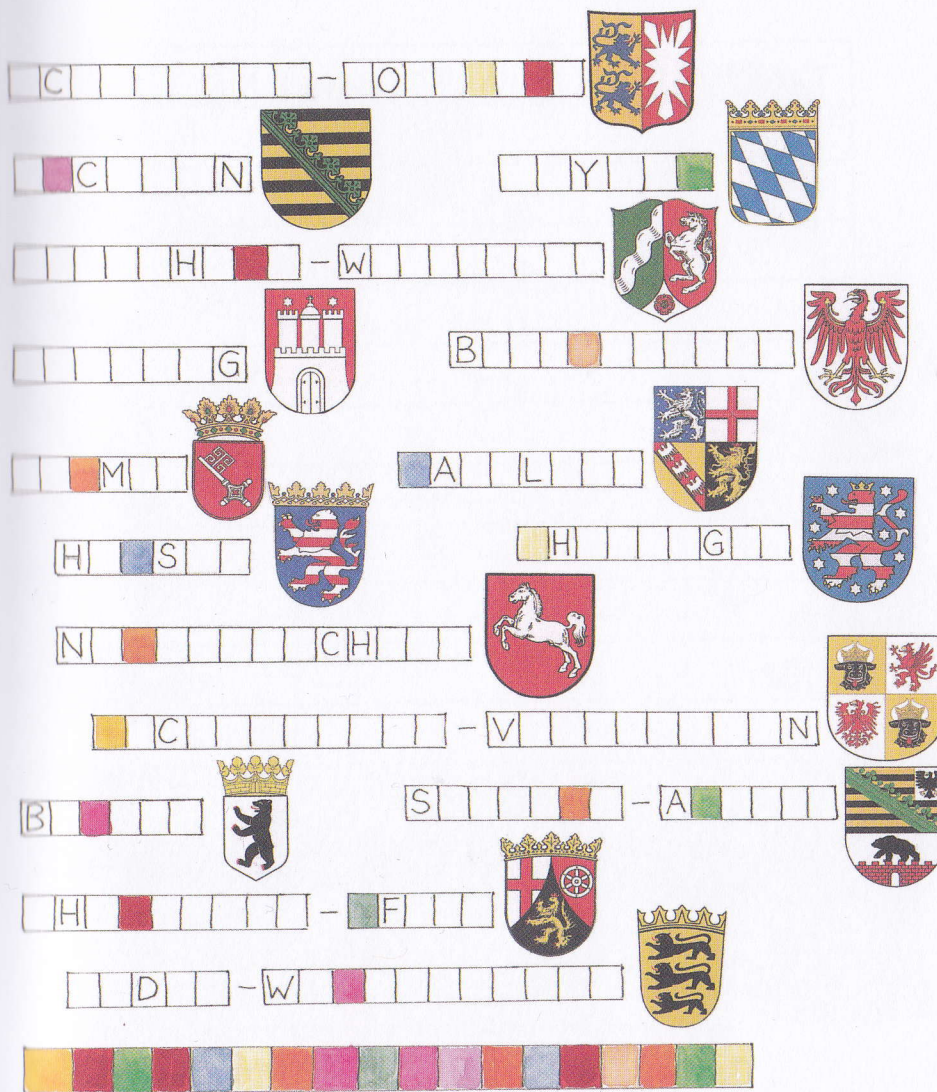 C – O
C N Y
H – W
G B
M A L
H S H G
N CH
C – V N
B S – A
H – F
D – W